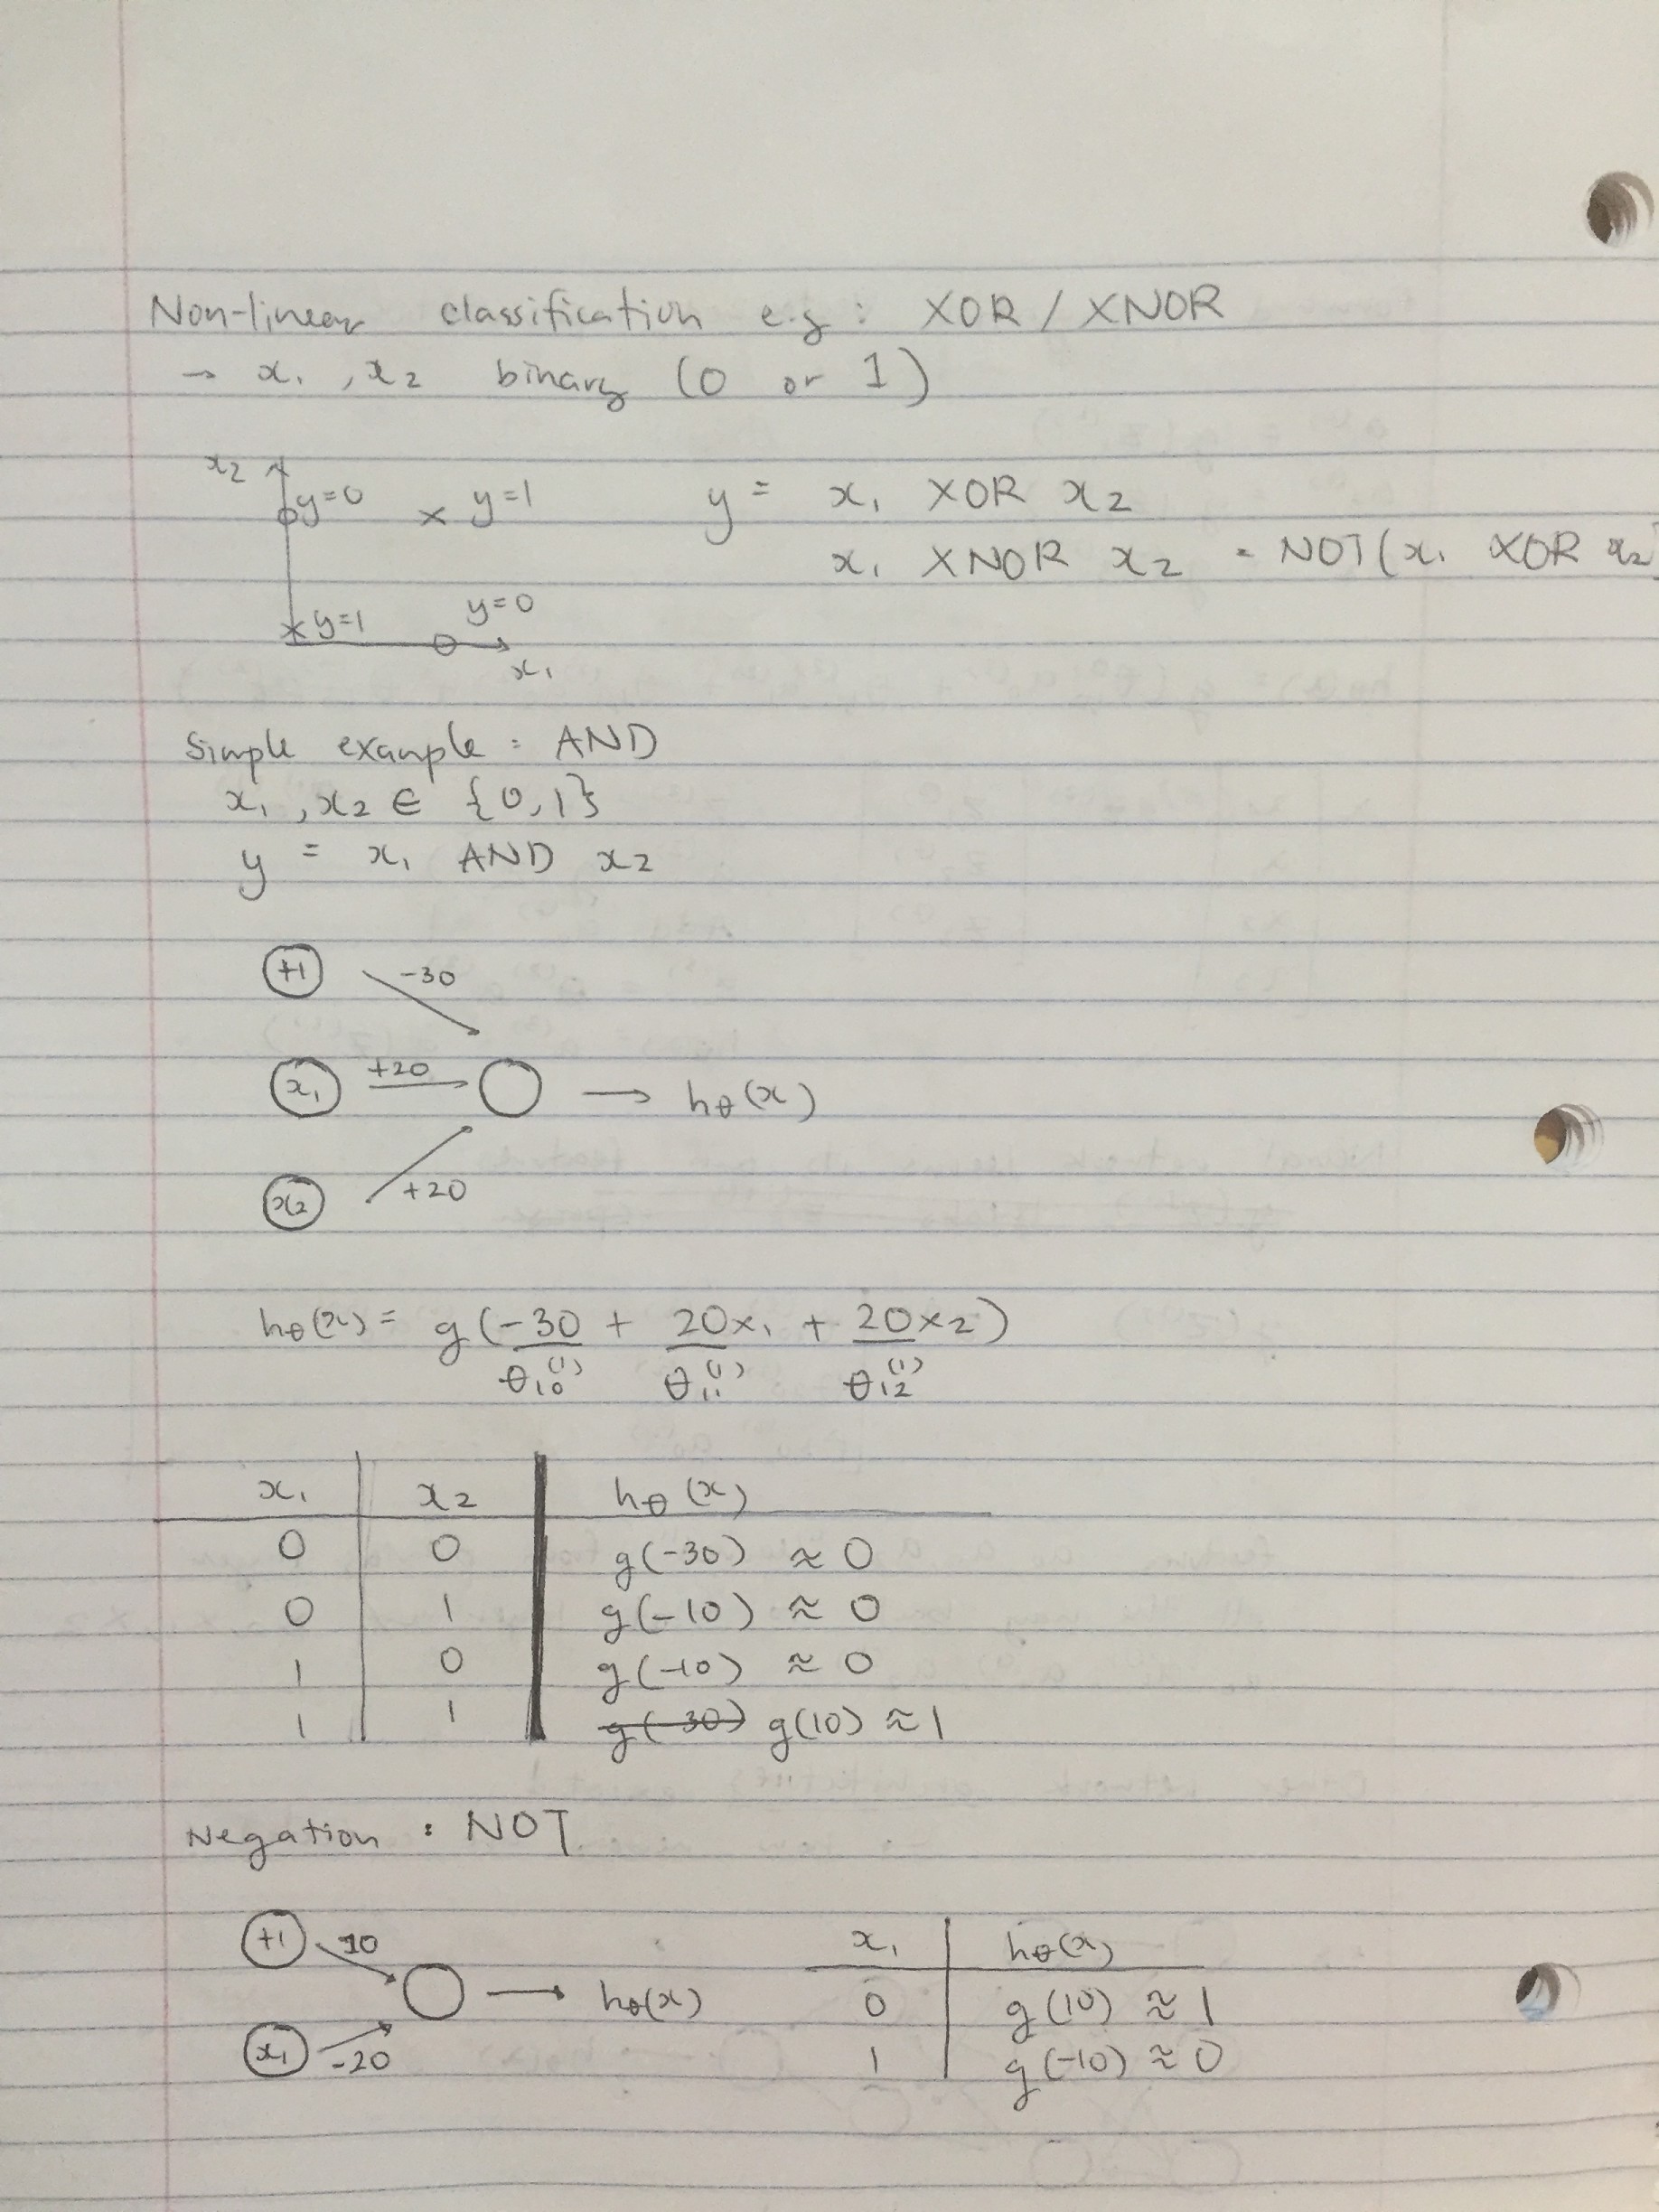 Non-linear classification e.g : XOR / XNOR
→ x₁ , x₂ binary (0 or 1)
x₂ y=0 y=1 y = x₁ XOR x₂
x₁ XNOR x₂ = NOT(x₁ XOR x₂)
y=1 y=0
x₁
Simple example : AND
x₁ , x₂ ∈ {0,1}
y = x₁ AND x₂
+1 -30
x₁ +20 → hθ(x)
x₂ +20
hθ(x) = g(-30 + 20x₁ + 20x₂)
θ₁₀⁽¹⁾ θ₁₁⁽¹⁾ θ₁₂⁽¹⁾
x₁ x₂ hθ(x)
0 0 g(-30) ≈ 0
0 1 g(-10) ≈ 0
1 0 g(-10) ≈ 0
1 1 g(-30) g(10) ≈ 1
Negation : NOT
+1 10 → hθ(x)
x₁ -20
x₁ hθ(x)
0 g(10) ≈ 1
1 g(-10) ≈ 0